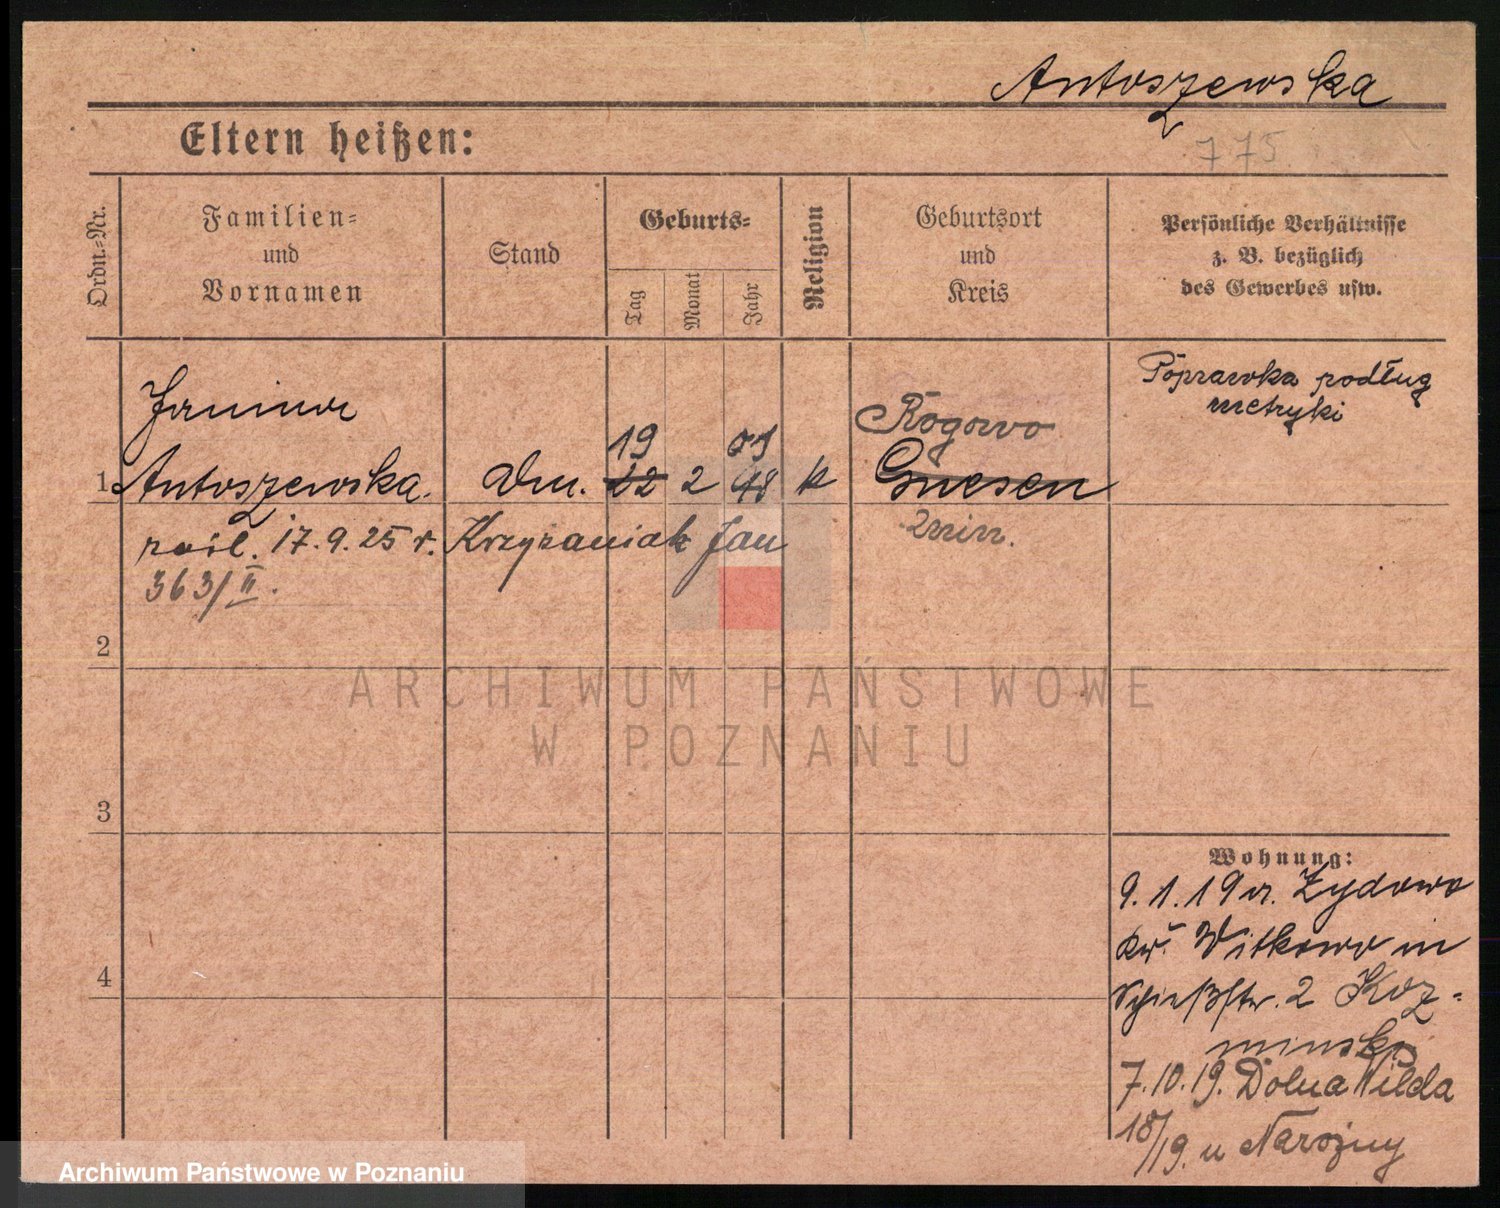 Antoszewska
775
Eltern heißen:
Ordn.-Nr.
Familien- und Vornamen
Stand
Geburts-
Tag
Monat
Jahr
Religion
Geburtsort und Kreis
Persönliche Verhältnisse
z. B. bezüglich
des Gewerbes usw.
Poprawka podług
metryki
Janina
19
Rogowo
1 Antoszewska. 22 2 98 k Gnesen
Żnin.
17.9.25 r. Krzyżaniak Jan
363/II.
2
ARCHIWUM PAŃSTWOWE
W POZNANIU
3
Wohnung:
9.1.19 Żydowo
Witkowo in
4
Schießstr. 2 Koz-
minski
7.10.19. Dolna Wilda
18/19. u Narożny
Archiwum Państwowe w Poznaniu